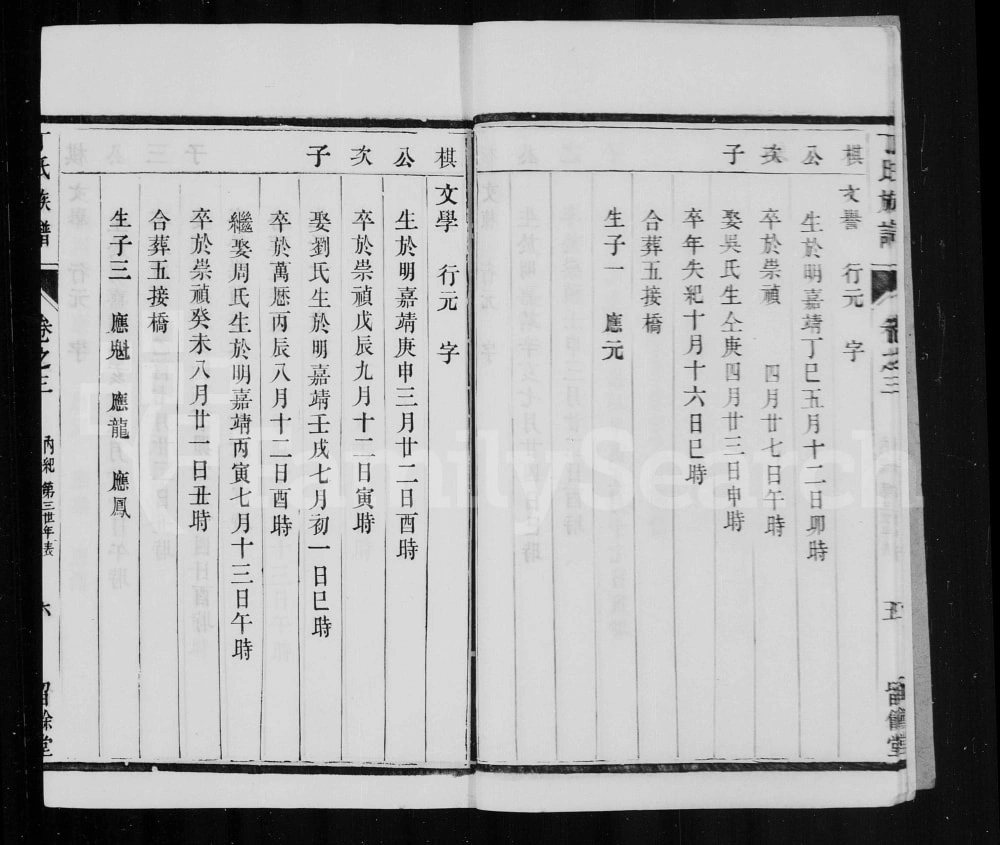 丁氏族譜 卷之三 五 留餘堂
棋 文譽 行元 字
公 生於明嘉靖丁巳五月十二日卯時
次 卒於崇禎 四月廿七日午時
子 娶吳氏生仝庚四月廿三日申時
卒年失紀十月十六日巳時
合葬五接橋
生子一 應元
棋 文學 行元 字
公 生於明嘉靖庚申三月廿二日酉時
次 卒於崇禎戊辰九月十二日寅時
子 娶劉氏生於明嘉靖壬戌七月初一日巳時
卒於萬厯丙辰八月十二日酉時
繼娶周氏生於明嘉靖丙寅七月十三日午時
卒於崇禎癸未八月廿一日丑時
合葬五接橋
生子三 應魁 應龍 應鳳
丁氏族譜 卷之三 內紀 第三世年表 六 留餘堂
FamilySearch